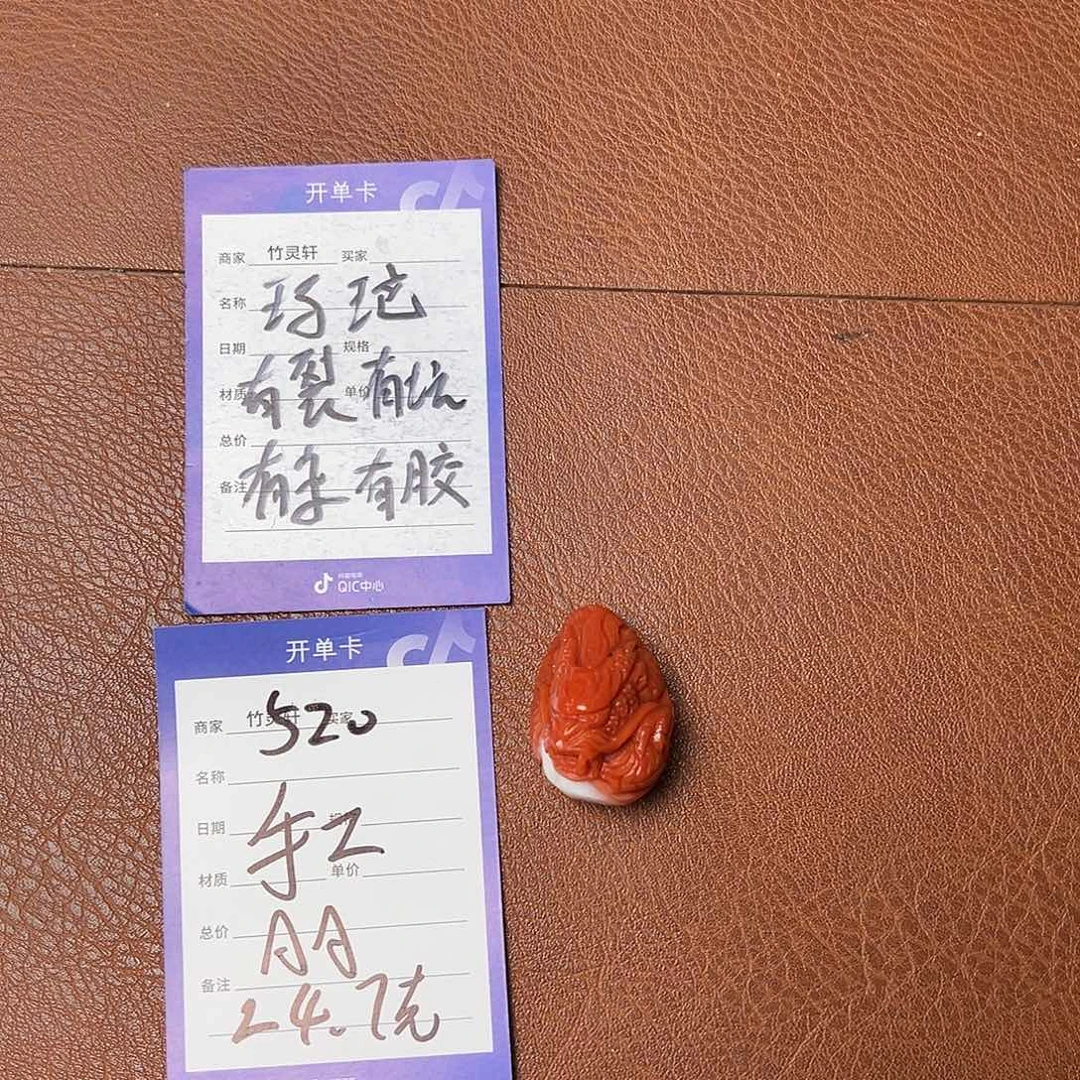 开单卡
商家 竹灵轩 买家
名称 玛瑙
日期 规格
材质 有裂 单价 有坑
总价
备注 有杂 有胶
抖音电商
QIC中心
开单卡
商家 竹灵轩 买家 520
名称
日期 手工
材质 单价
总价 AA
备注
24.7克